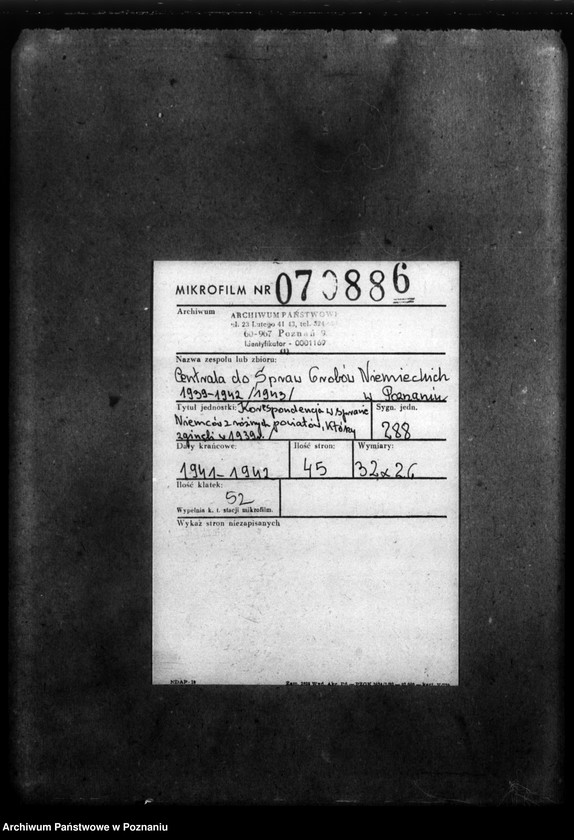 MIKROFILM NR 070886
Archiwum
ARCHIWUM PAŃSTWOWE
ul. 23 Lutego 41/43, tel.
60-967 Poznań 9
Identyfikator - 0001169
Nazwa zespołu lub zbioru:
Centrala do Spraw Grobów Niemieckich
1939-1942 /1943/ w Poznaniu
Tytuł jednostki: Korespondencja w sprawie
Niemców z różnych powiatów, którzy
zginęli w 1939 r.
Sygn. jedn.
288
Daty krańcowe:
1941-1942
Ilość stron:
45
Wymiary:
32x26
Ilość klatek:
52
Wypełnia k. t. stacji mikrofilm.
Wykaz stron niezapisanych
Archiwum Państwowe w Poznaniu